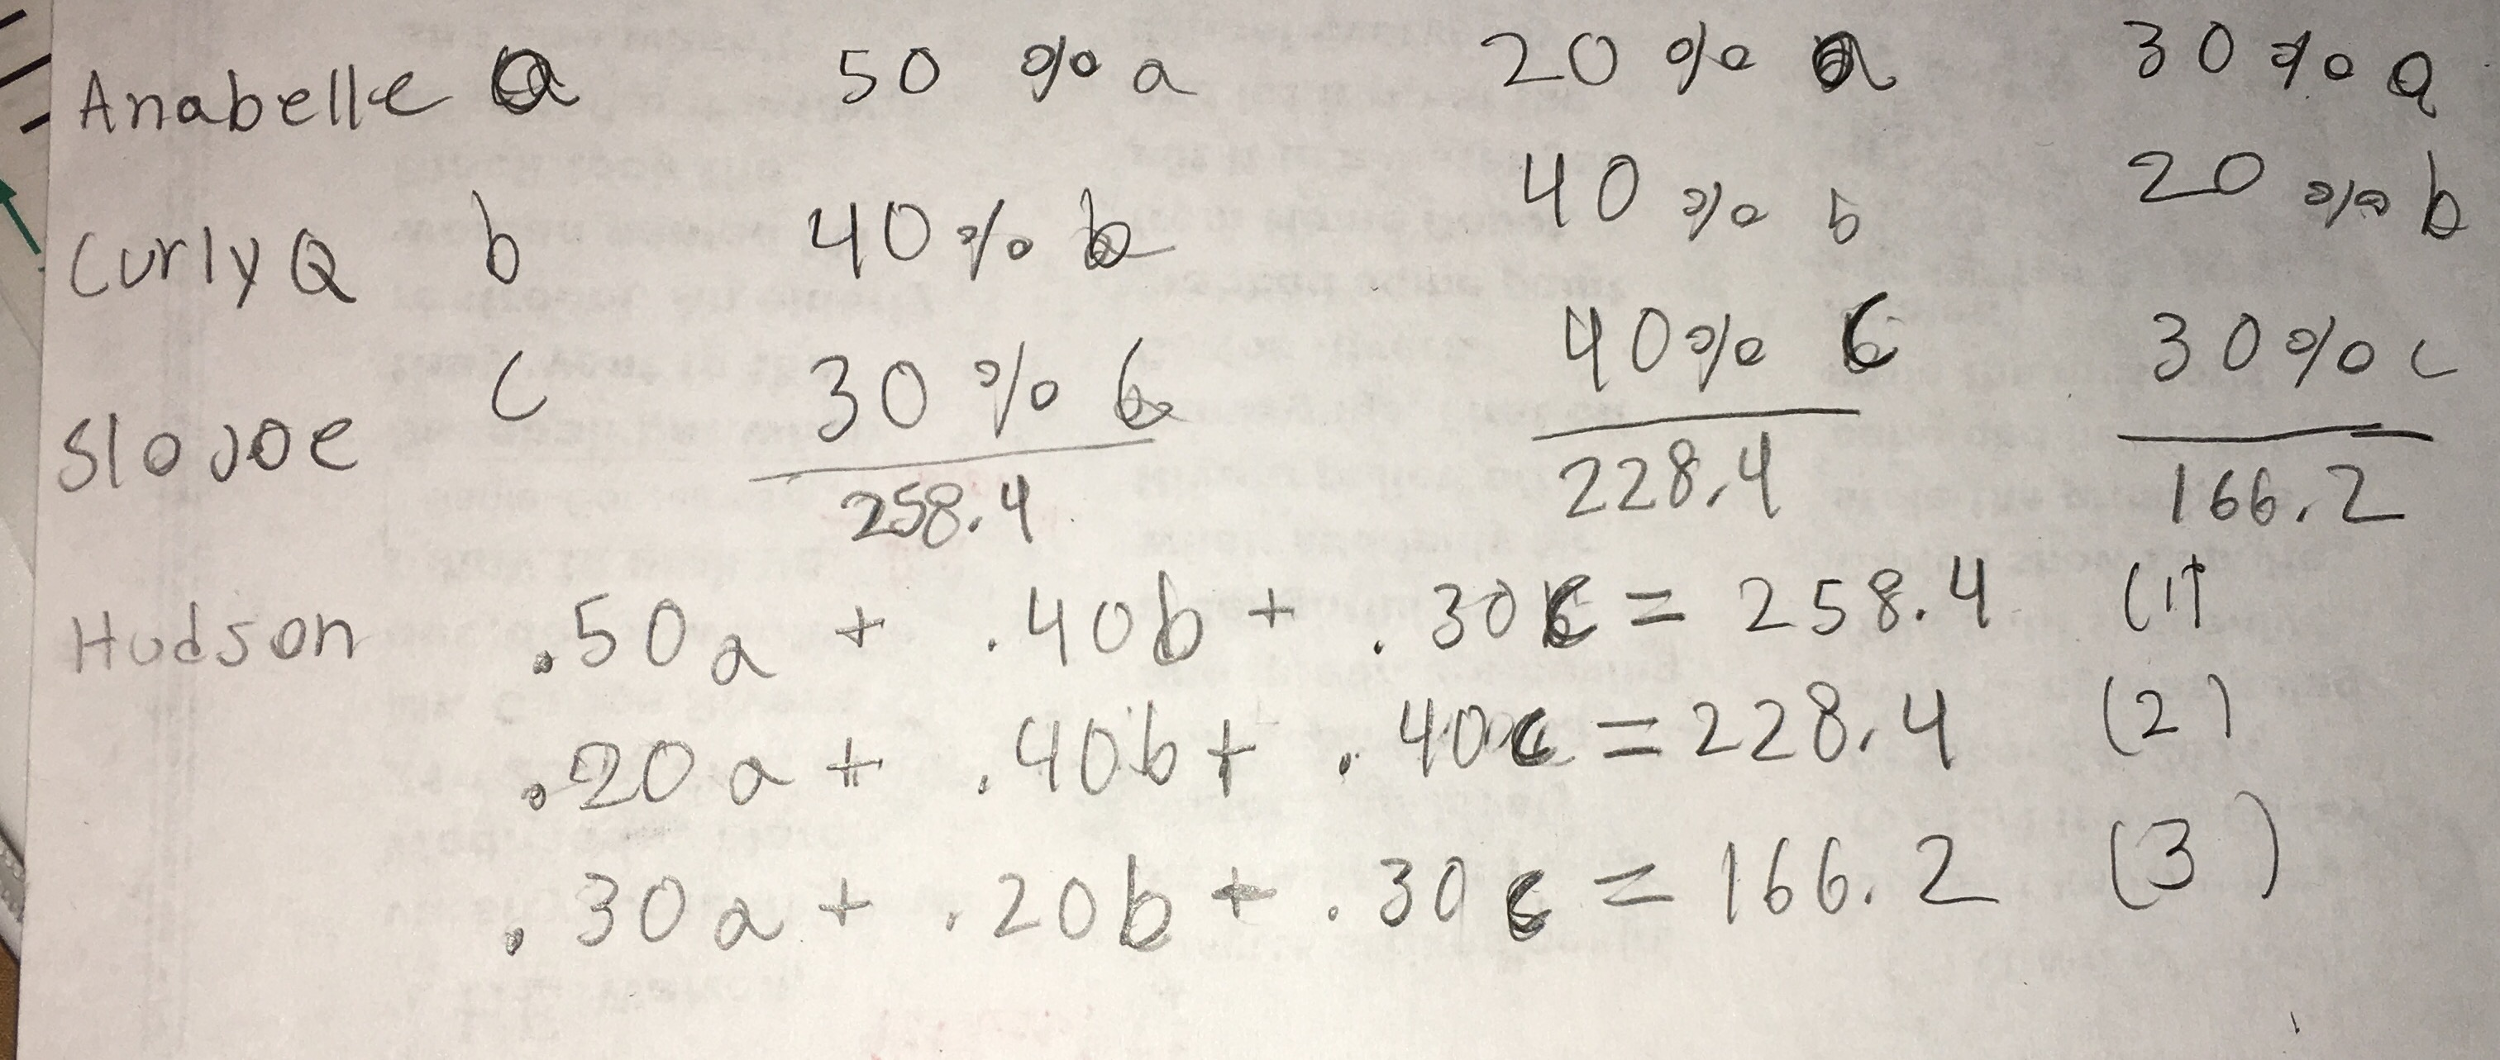 Anabelle a 50 % a 20 % a 30 % a
Curly Q b 40 % b 40 % b 20 % b
Slo Joe c 30 % c 40 % c 30 % c
258.4 228.4 166.2
Hudson .50a + .40b + .30c = 258.4 (1)
.20a + .40b + .40c = 228.4 (2)
.30a + .20b + .30c = 166.2 (3)